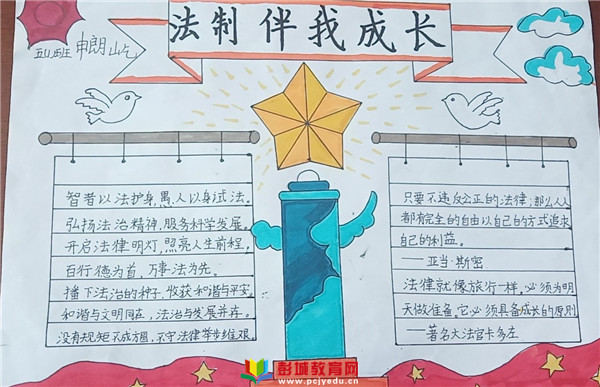 法制伴我成长
五(1)班 申朗屹
智者以法护身,愚人以身试法。
弘扬法治精神,服务科学发展。
开启法律明灯,照亮人生前程,
百行德为首,万事法为先。
播下法治的种子,收获和谐与平安。
和谐与文明同在,法治与发展并存。
没有规矩不成方圆,不守法律举步维艰
只要不违反公正的法律,那么人人
都有完全的自由以自己的方式追求
自己的利益。
——亚当·斯密
法律就像旅行一样,必须为明
天做准备。它必须具备成长的原则
——著名大法官卡多左
彭城教育网
www.pcjyedu.cn